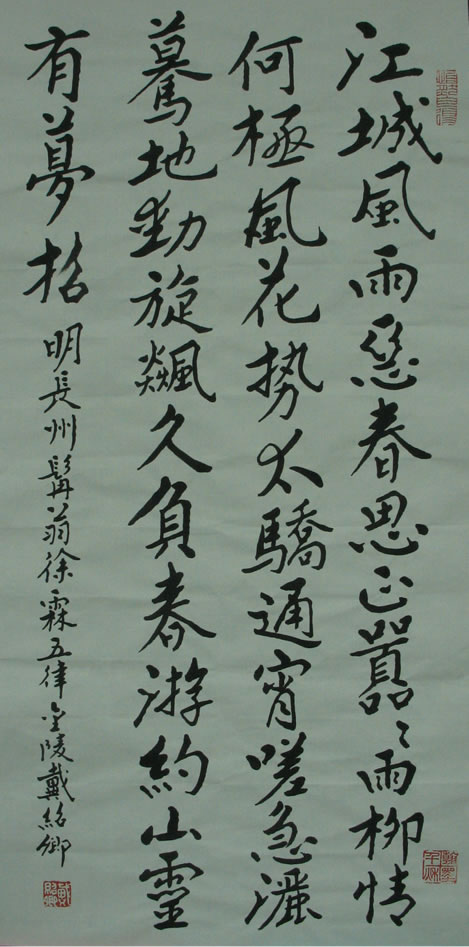 江城風雨惡春思正囂〻雨柳情
何極風花勢太驕通宵嗟急灑
驀地動旋飆久負春游約山靈
有夢招
明長州髯翁徐霖五律金陵戴紹卿